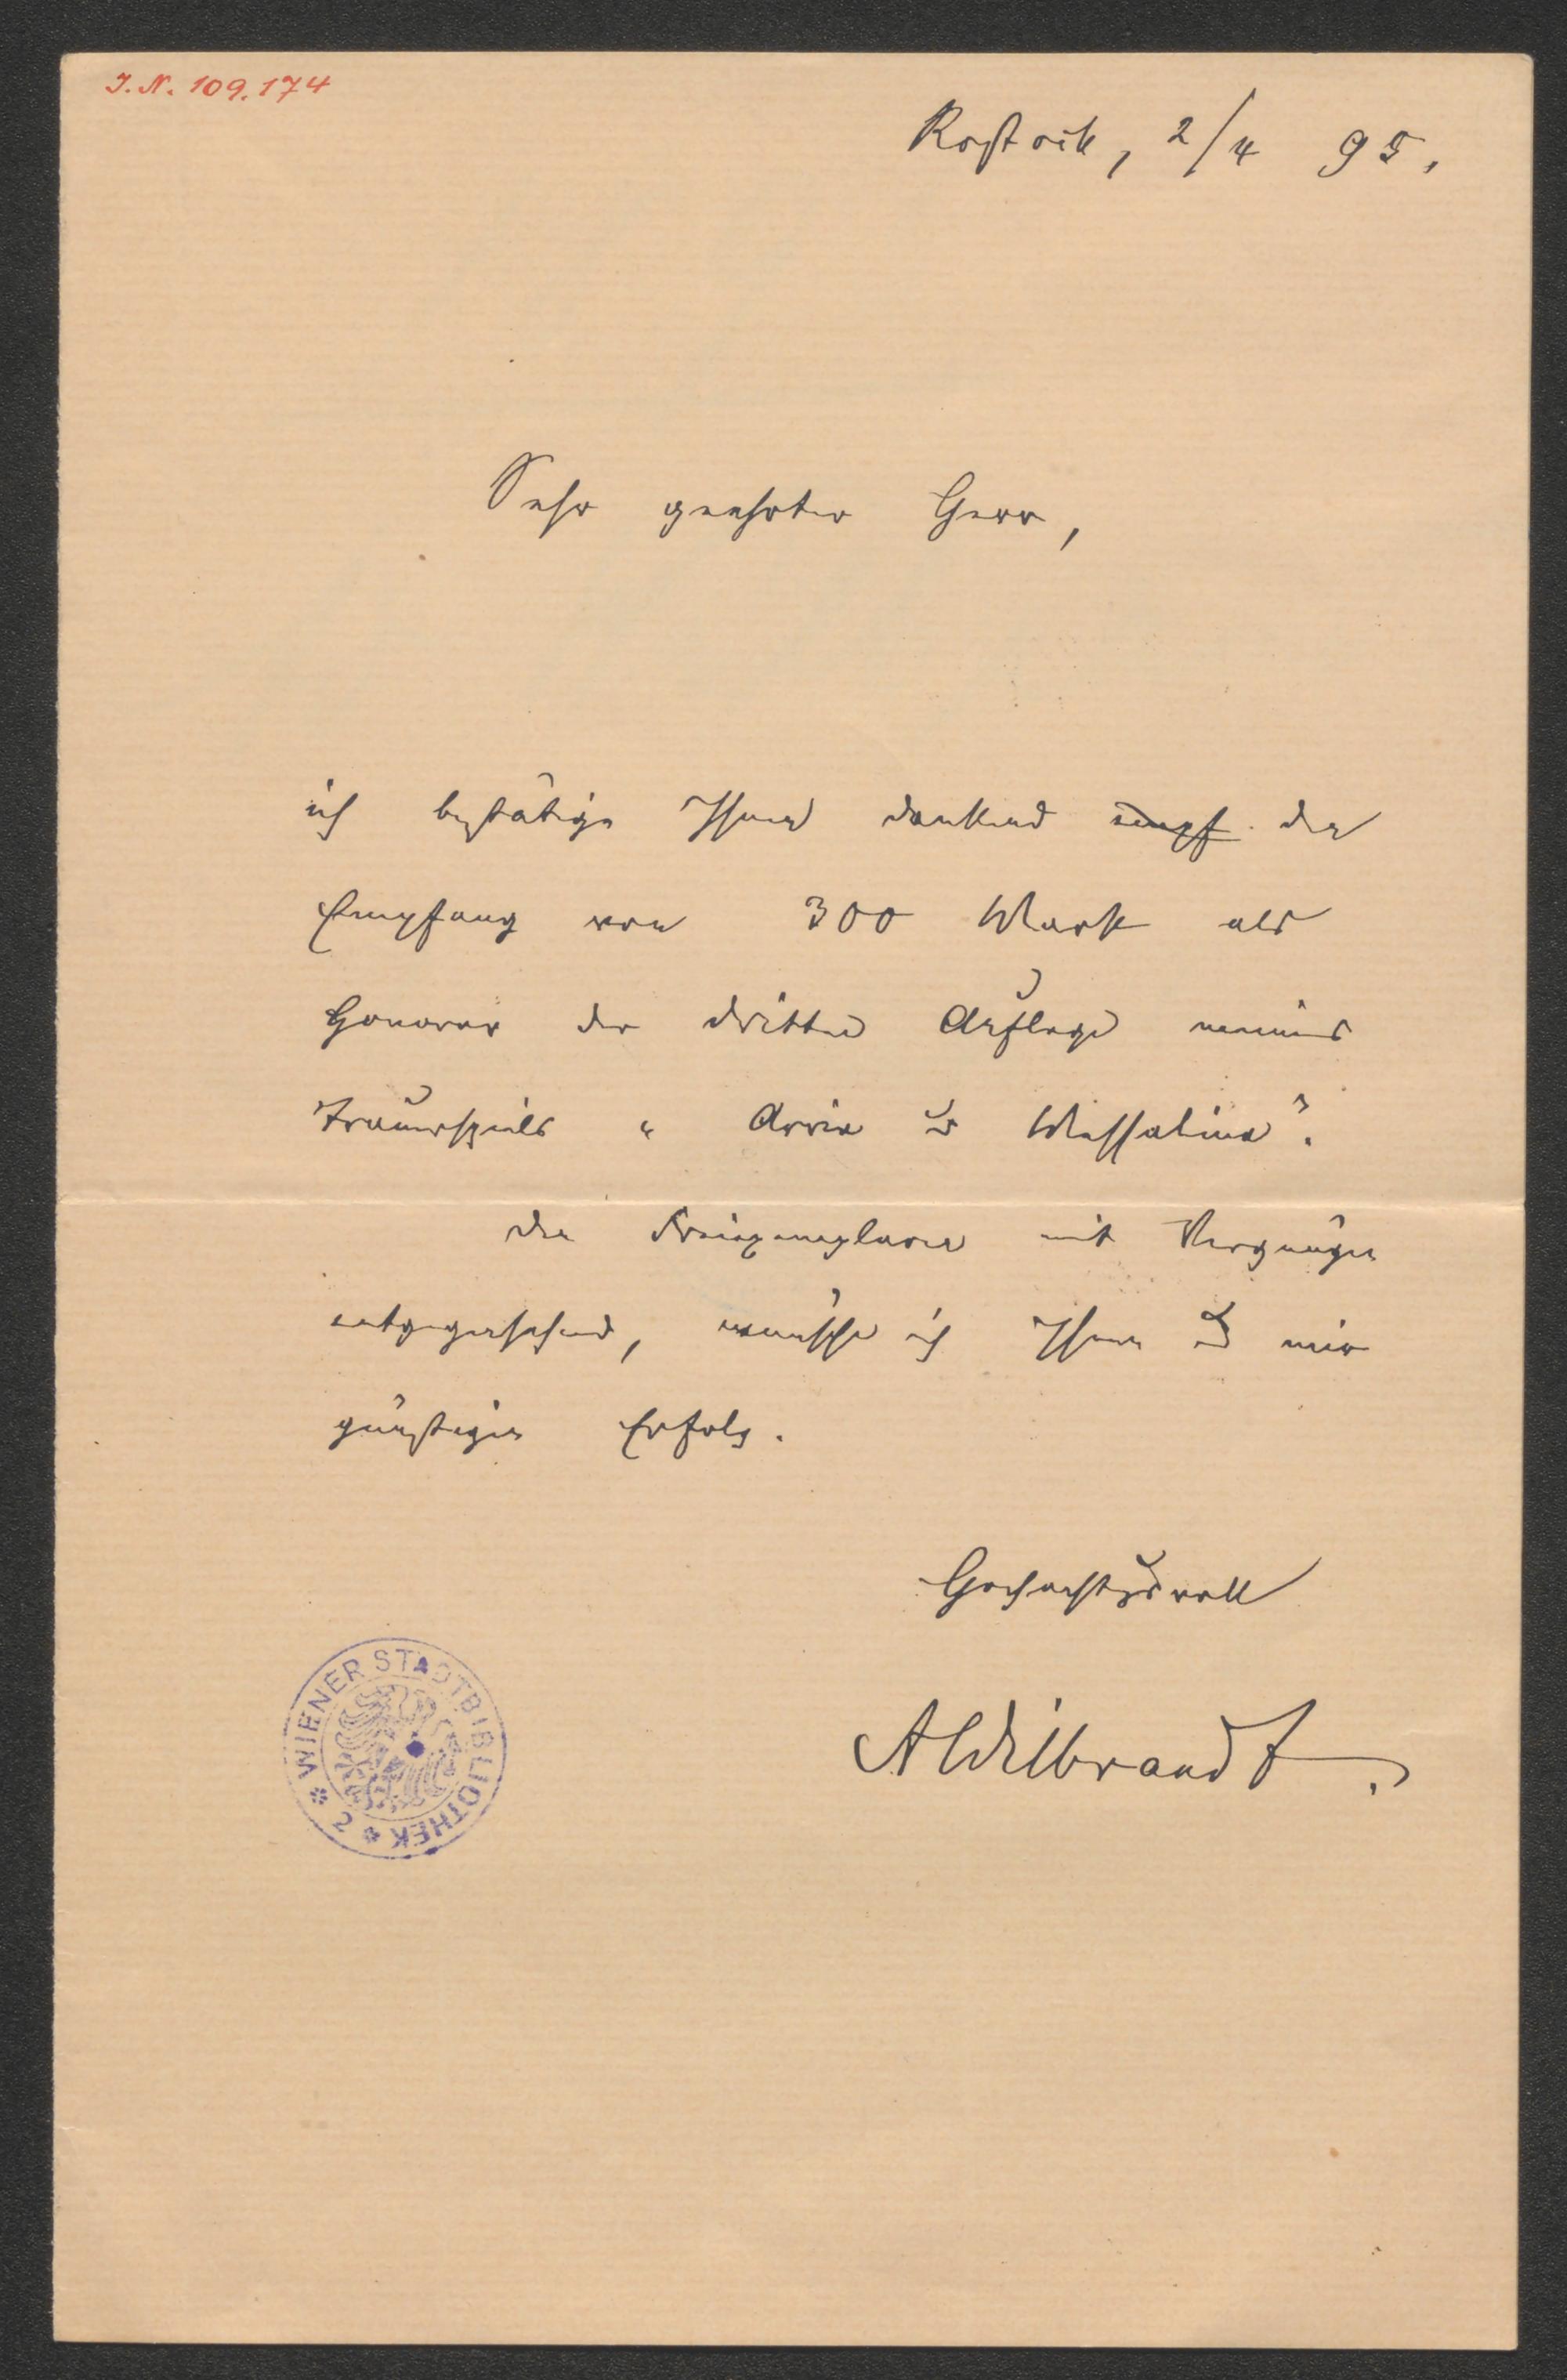 J.N. 109.174
Rostock, 2/4 95.
Sehr geehrter Herr,
ich bestätige Ihnen dankend empf. den
Empfang von 300 Mark als
Honorar der dritten Auflage meines
Trauerspiels „Arria u Messalina“.
Den Freiexemplaren mit Vergnügen
entgegensehend, wünsche ich Ihnen u mir
günstigen Erfolg.
Hochachtungsvoll
AWilbrandt.
WIENER STADTBIBLIOTHEK * 2 *